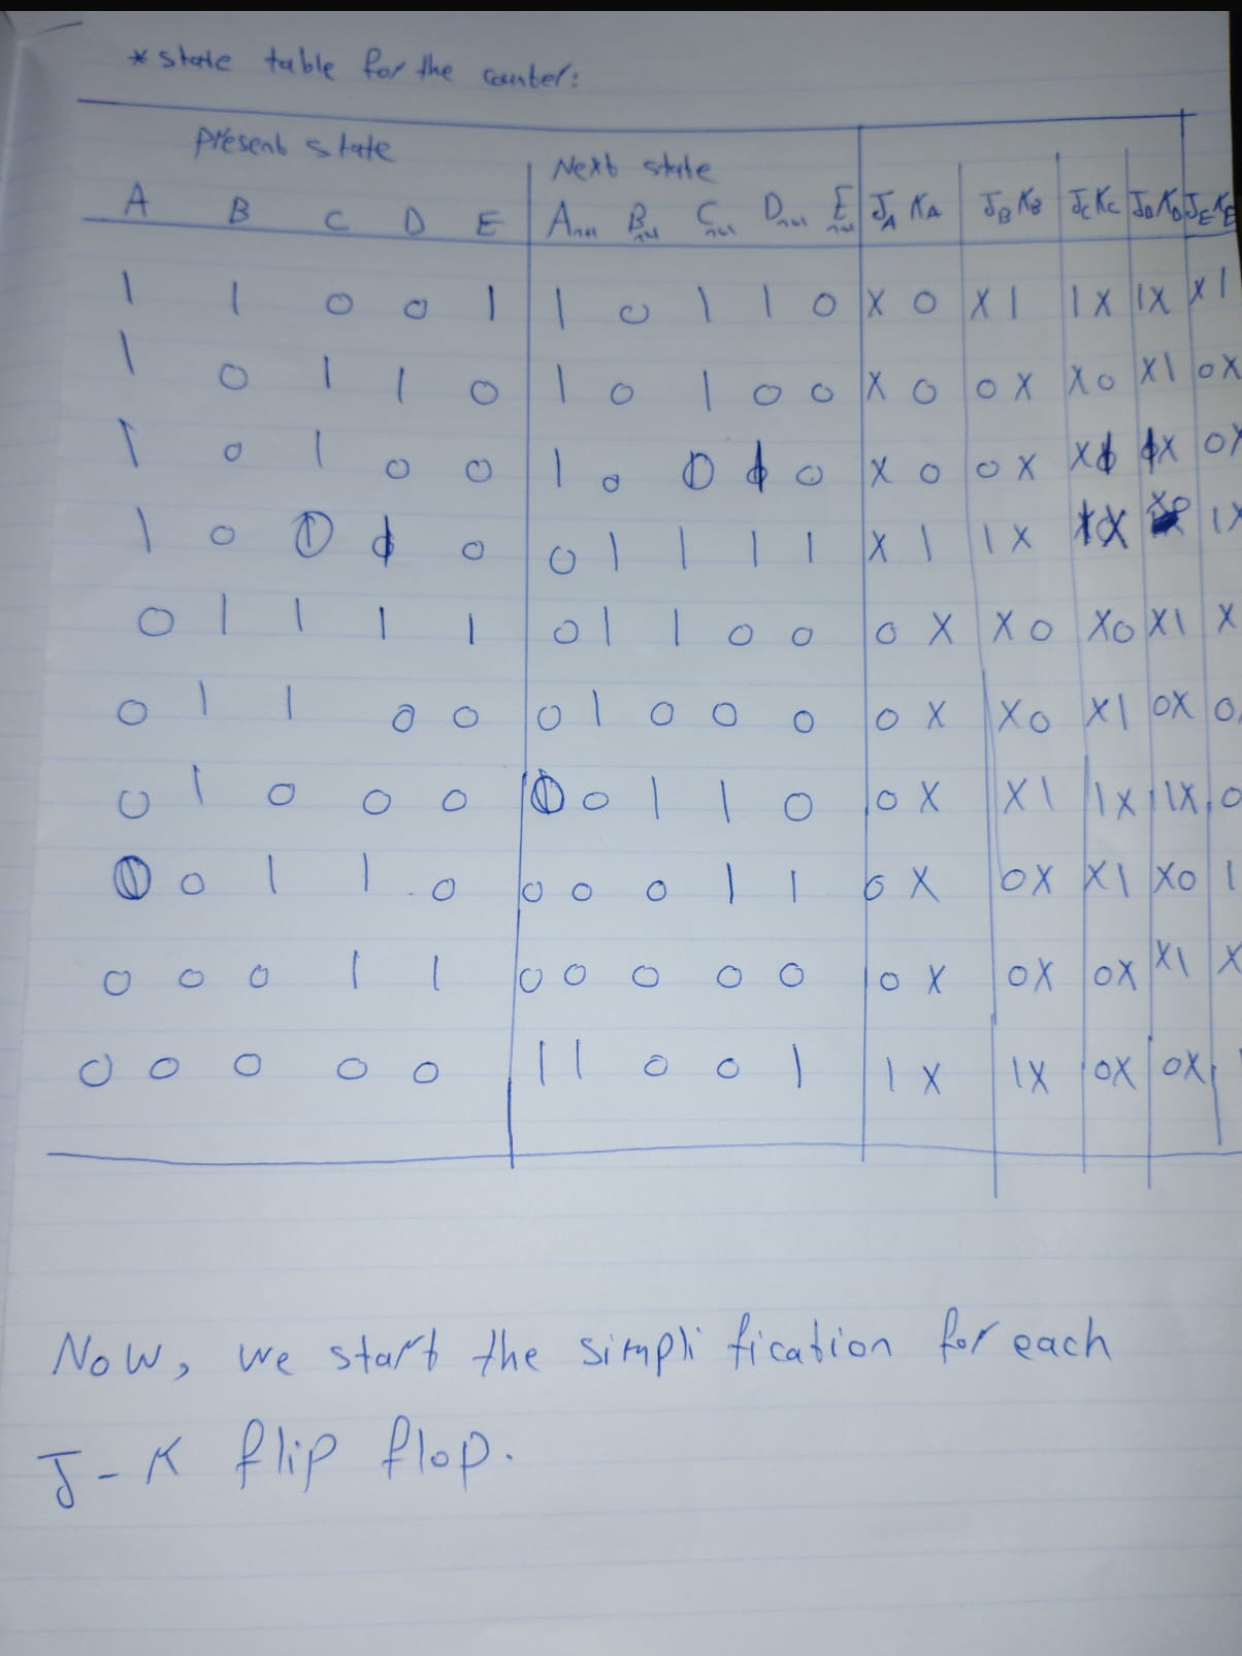 * state table for the counter:
Present state Next state
A B C D E A B C D E J_A K_A J_B K_B J_C K_C J_D K_D J_E K_E
1 1 0 0 1 1 0 1 1 0 X 0 X 1 1 X 1 X X 1
1 0 1 1 0 1 0 1 0 0 X 0 0 X X 0 X 1 0 X
1 0 1 0 0 1 0 0 X 0 0 X X 0 X
1 0 0 0 1 1 1 1 X 1 1 X X 1 X
0 1 1 1 1 0 1 1 0 0 0 X X 0 X 0 X 1 X
0 1 1 0 0 0 1 0 0 0 0 X X 0 X 1 0 X 0
0 1 0 0 0 0 1 1 0 0 X X 1 1 X 1 X 0
0 1 1 0 0 0 0 1 1 0 X 0 X X 1 X 0 1
0 0 0 1 1 0 0 0 0 0 0 X 0 X 0 X X 1 X
0 0 0 0 0 1 1 0 0 1 1 X 1 X 0 X 0 X
Now, we start the simplification for each
J-K flip flop.